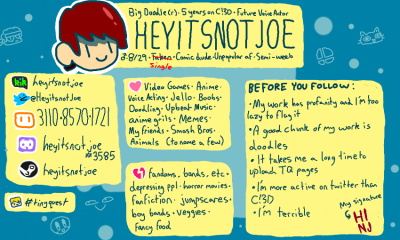 Big Doodle(r) • 5 years on C!3D • Future Voice Actor
HEYITSNOTJOE
8/29 • Taken • Comic dude • Unpopular af • Semi-weeb
Single
heyitsnotjoe
@Heyitsnotjoe
3110-8570-1721
heyitsnotjoe
#3585
heyitsnotjoe
#tinypest
Video Games • Anime •
Voice Acting • Jello • Boobs •
Doodling • Upbeat Music •
anime girls • Memes •
My friends • Smash Bros.
Animals (to name a few)
fandoms, bands, etc •
depressing ppl • horror movies •
fanfiction • jumpscares •
boy bands • veggies •
fancy food
BEFORE YOU FOLLOW:
• My work has profanity and I'm too
lazy to flag it
• A good chunk of my work is
doodles
• It takes me a long time to
upload TQ pages
• I'm more active on twitter than
C!3D
• I'm terrible
My signature
HI
NJ